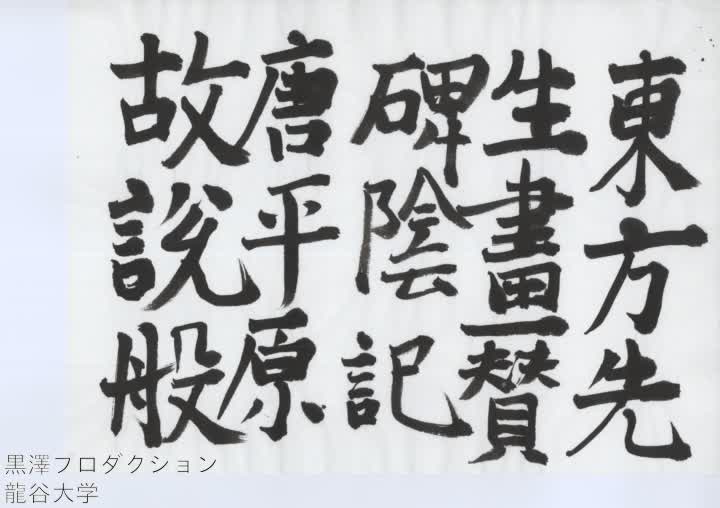 東方先
生畫賛
碑陰記
唐平原
故説般
黒澤プロダクション
龍谷大学